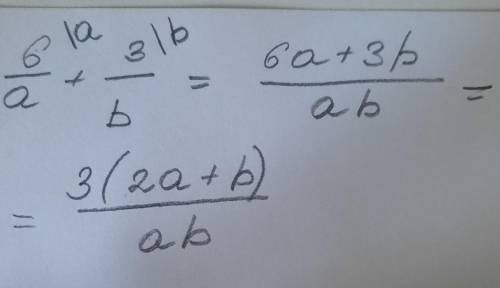 6\a/a + 3\b/b = (6a+3b)/(ab) =
= 3(2a+b)/(ab)